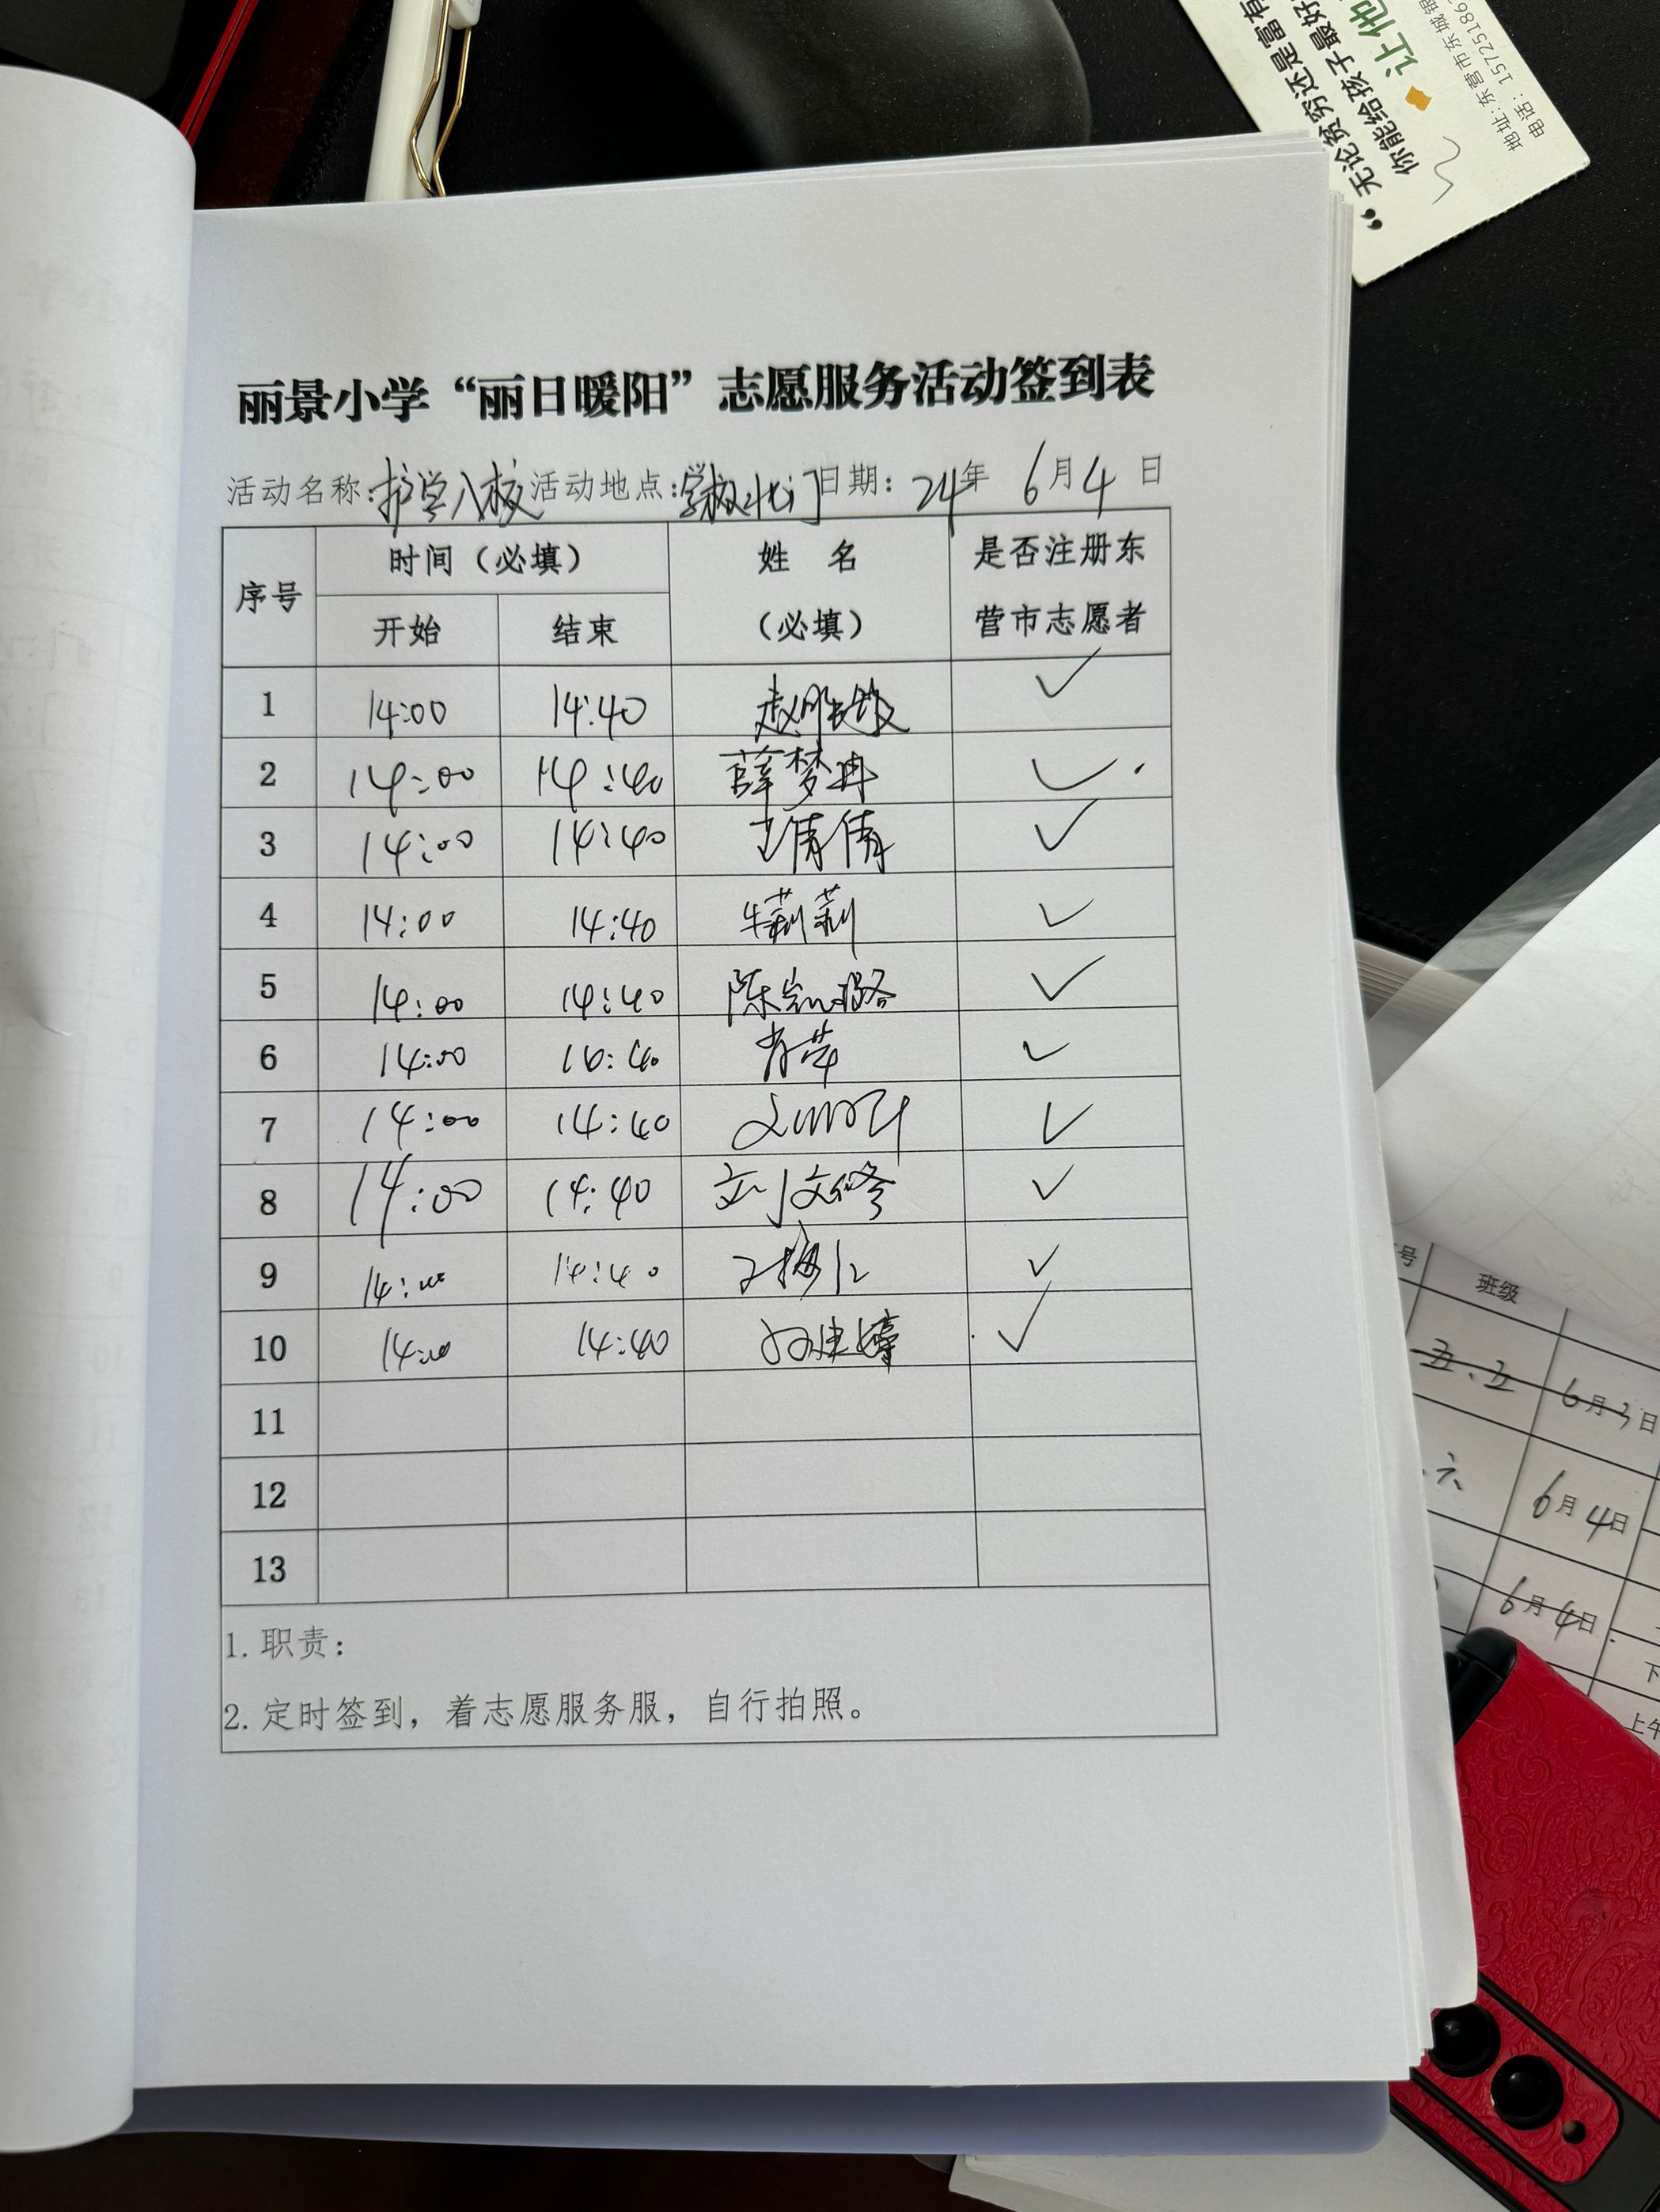 “无论贫穷还是富有
你能给孩子最好
让他
地址：东营市东城银
电话：15725186
丽景小学“丽日暖阳”志愿服务活动签到表
活动名称：护学入校 活动地点：学校北门 日期：24年 6月4日
序号 时间（必填） 姓 名 是否注册东
开始 结束 （必填） 营市志愿者
1 14:00 14:40 ✓
2 14:00 14:40 薛梦冉 ✓
3 14:00 14:40 王倩倩 ✓
4 14:00 14:40 牛莉莉 ✓
5 14:00 14:40 陈凯璐 ✓
6 14:00 14:40 肖苹 ✓
7 14:00 14:40 ✓
8 14:00 14:40 刘文修 ✓
9 14:00 14:40 ✓
10 14:00 14:40 ✓
11
12
13
1.职责：
2.定时签到，着志愿服务服，自行拍照。
号 班级
五、五 6月3日
六 6月4日
6月4日
下
上午